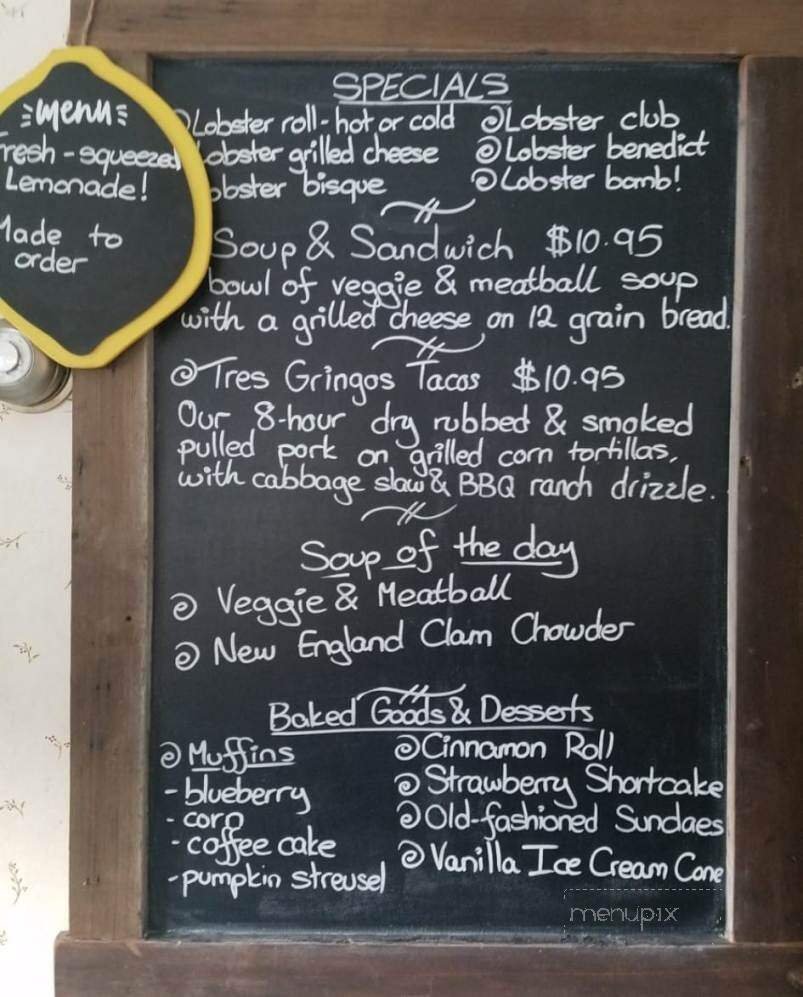 menu
Fresh-squeezed
Lemonade!
Made to
order
SPECIALS
Lobster roll-hot or cold
Lobster grilled cheese
Lobster bisque
Lobster club
Lobster benedict
Lobster bomb!
Soup & Sandwich $10.95
bowl of veggie & meatball soup
with a grilled cheese on 12 grain bread.
Tres Gringos Tacos $10.95
Our 8-hour dry rubbed & smoked
pulled pork on grilled corn tortillas,
with cabbage slaw & BBQ ranch drizzle.
Soup of the day
Veggie & Meatball
New England Clam Chowder
Baked Goods & Desserts
Muffins
- blueberry
- corn
- coffee cake
- pumpkin streusel
Cinnamon Roll
Strawberry Shortcake
Old-fashioned Sundaes
Vanilla Ice Cream Cone
menupix